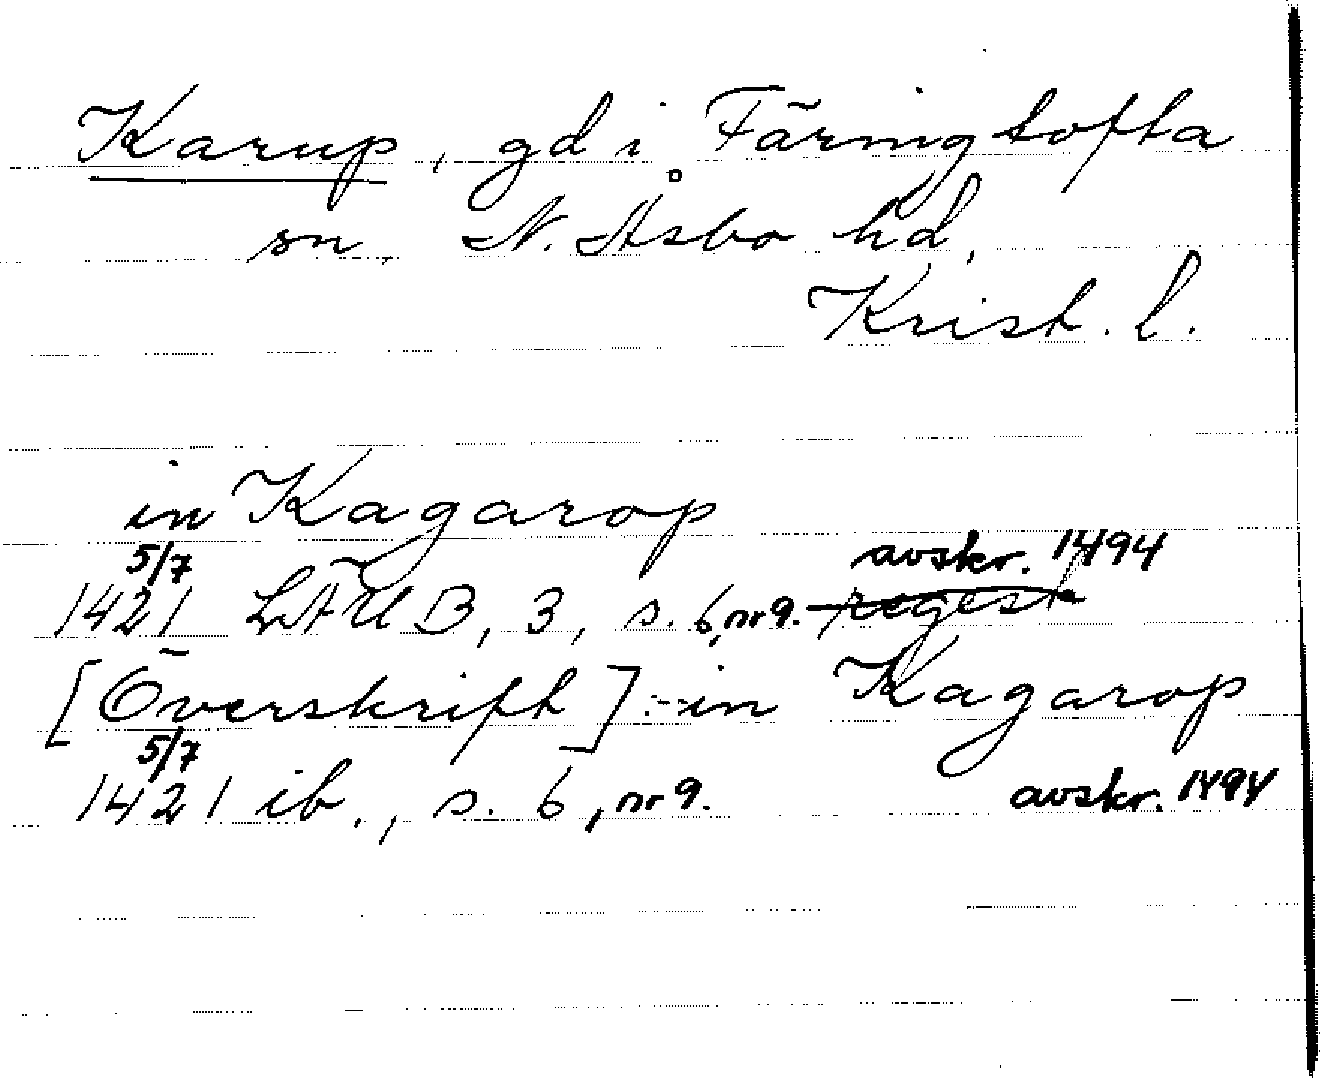 Karup, gd i Färingtofta
sn, N. Åsbo hd,
Krist. l.
in Kagarop
5/7 avskr. 1494
1421 LÄUB, 3, s. 6, nr 9. regest
[Överskrift]: in Kagarop
5/7
1421 ib., s. 6, nr 9. avskr. 1494